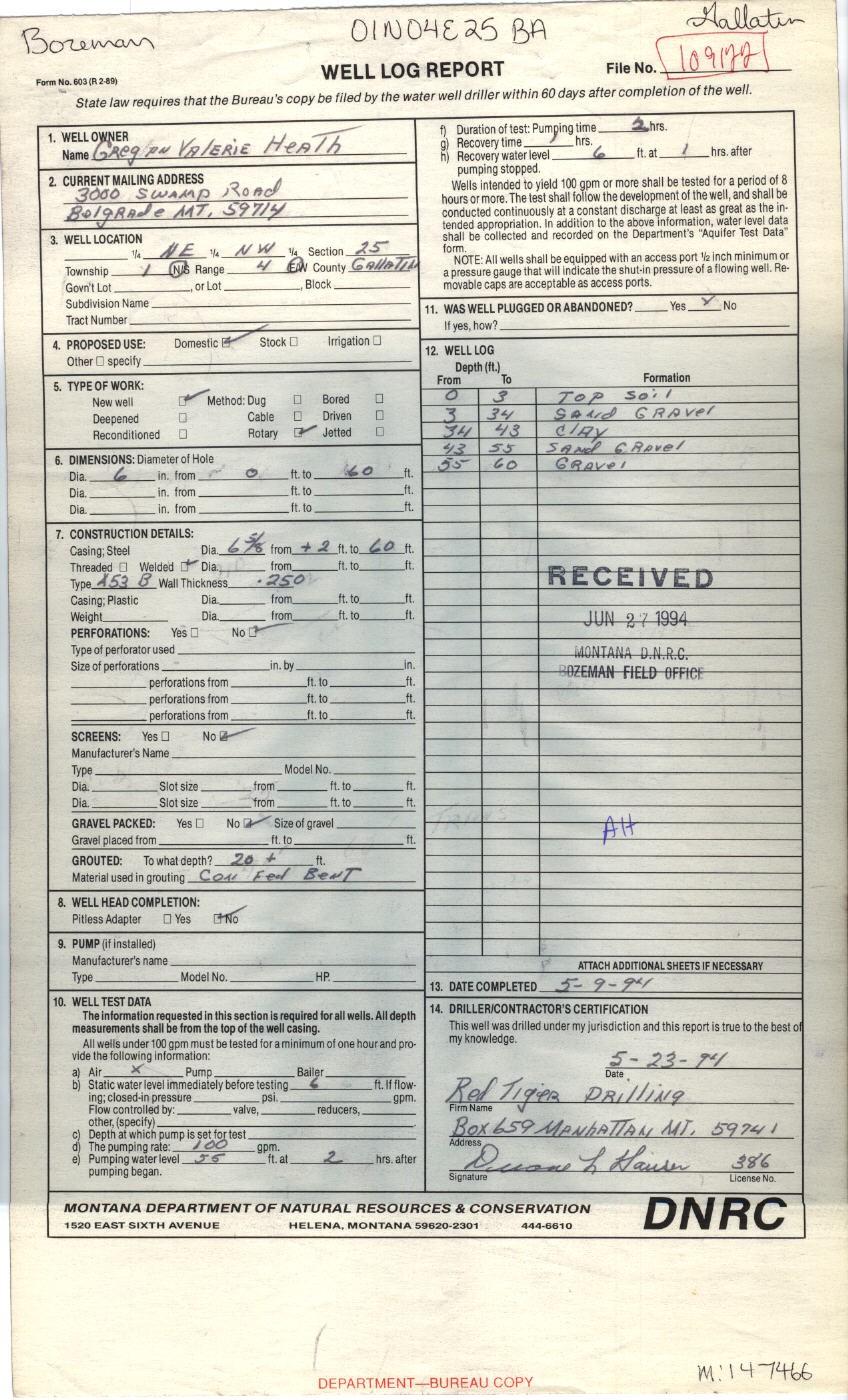 Bozeman
01N04E25 BA
Gallatin
Form No. 603 (R 2-89)
WELL LOG REPORT
File No. 109122
State law requires that the Bureau's copy be filed by the water well driller within 60 days after completion of the well.
1. WELL OWNER
Name Greg on Valerie Heath
2. CURRENT MAILING ADDRESS
3000 Swamp Road
Belgrade MT. 59714
3. WELL LOCATION
1/4 NE 1/4 NW 1/4 Section 25
Township 1 N/S Range 4 E/W County Gallatin
Gov'n't Lot , or Lot , Block
Subdivision Name
Tract Number
4. PROPOSED USE: Domestic ☑ Stock ☐ Irrigation ☐
Other ☐ specify
5. TYPE OF WORK:
New well ☑ Method: Dug ☐ Bored ☐
Deepened ☐ Cable ☐ Driven ☐
Reconditioned ☐ Rotary ☑ Jetted ☐
6. DIMENSIONS: Diameter of Hole
Dia. 6 in. from 0 ft. to 60 ft.
Dia. in. from ft. to ft.
Dia. in. from ft. to ft.
7. CONSTRUCTION DETAILS:
Casing; Steel Dia. 6 5/8 from +2 ft. to 60 ft.
Threaded ☐ Welded ☑ Dia. from ft. to ft.
Type A53 B Wall Thickness .250
Casing; Plastic Dia. from ft. to ft.
Weight Dia. from ft. to ft.
PERFORATIONS: Yes ☐ No ☑
Type of perforator used
Size of perforations in. by in.
perforations from ft. to ft.
perforations from ft. to ft.
perforations from ft. to ft.
SCREENS: Yes ☐ No ☑
Manufacturer's Name
Type Model No.
Dia. Slot size from ft. to ft.
Dia. Slot size from ft. to ft.
GRAVEL PACKED: Yes ☐ No ☑ Size of gravel
Gravel placed from ft. to ft.
GROUTED: To what depth? 20 + ft.
Material used in grouting Con Fed Bent
8. WELL HEAD COMPLETION:
Pitless Adapter ☐ Yes ☑ No
9. PUMP (if installed)
Manufacturer's name
Type Model No. HP.
10. WELL TEST DATA
The information requested in this section is required for all wells. All depth
measurements shall be from the top of the well casing.
All wells under 100 gpm must be tested for a minimum of one hour and pro-
vide the following information:
a) Air X Pump Bailer
b) Static water level immediately before testing 6 ft. If flow-
ing; closed-in pressure psi. gpm.
Flow controlled by: valve, reducers,
other, (specify)
c) Depth at which pump is set for test
d) The pumping rate: 100 gpm.
e) Pumping water level 55 ft. at 2 hrs. after
pumping began.
f) Duration of test: Pumping time 2 hrs.
g) Recovery time 1 hrs.
h) Recovery water level 6 ft. at 1 hrs. after
pumping stopped.
Wells intended to yield 100 gpm or more shall be tested for a period of 8
hours or more. The test shall follow the development of the well, and shall be
conducted continuously at a constant discharge at least as great as the in-
tended appropriation. In addition to the above information, water level data
shall be collected and recorded on the Department's "Aquifer Test Data"
form.
NOTE: All wells shall be equipped with an access port 1/2 inch minimum or
a pressure gauge that will indicate the shut-in pressure of a flowing well. Re-
movable caps are acceptable as access ports.
11. WAS WELL PLUGGED OR ABANDONED? Yes ✓ No
If yes, how?
12. WELL LOG
Depth (ft.)
From To Formation
0 3 Top Soil
3 34 Sand Gravel
34 43 Clay
43 55 Sand Gravel
55 60 Gravel
RECEIVED
JUN 27 1994
MONTANA D.N.R.C.
BOZEMAN FIELD OFFICE
AH
ATTACH ADDITIONAL SHEETS IF NECESSARY
13. DATE COMPLETED 5-9-94
14. DRILLER/CONTRACTOR'S CERTIFICATION
This well was drilled under my jurisdiction and this report is true to the best of
my knowledge.
5-23-94
Date
Red Tiger Drilling
Firm Name
Box 659 Manhattan MT. 59741
Address
Duane L Hauser 386
Signature License No.
MONTANA DEPARTMENT OF NATURAL RESOURCES & CONSERVATION
1520 EAST SIXTH AVENUE HELENA, MONTANA 59620-2301 444-6610
DNRC
DEPARTMENT—BUREAU COPY
M:147466